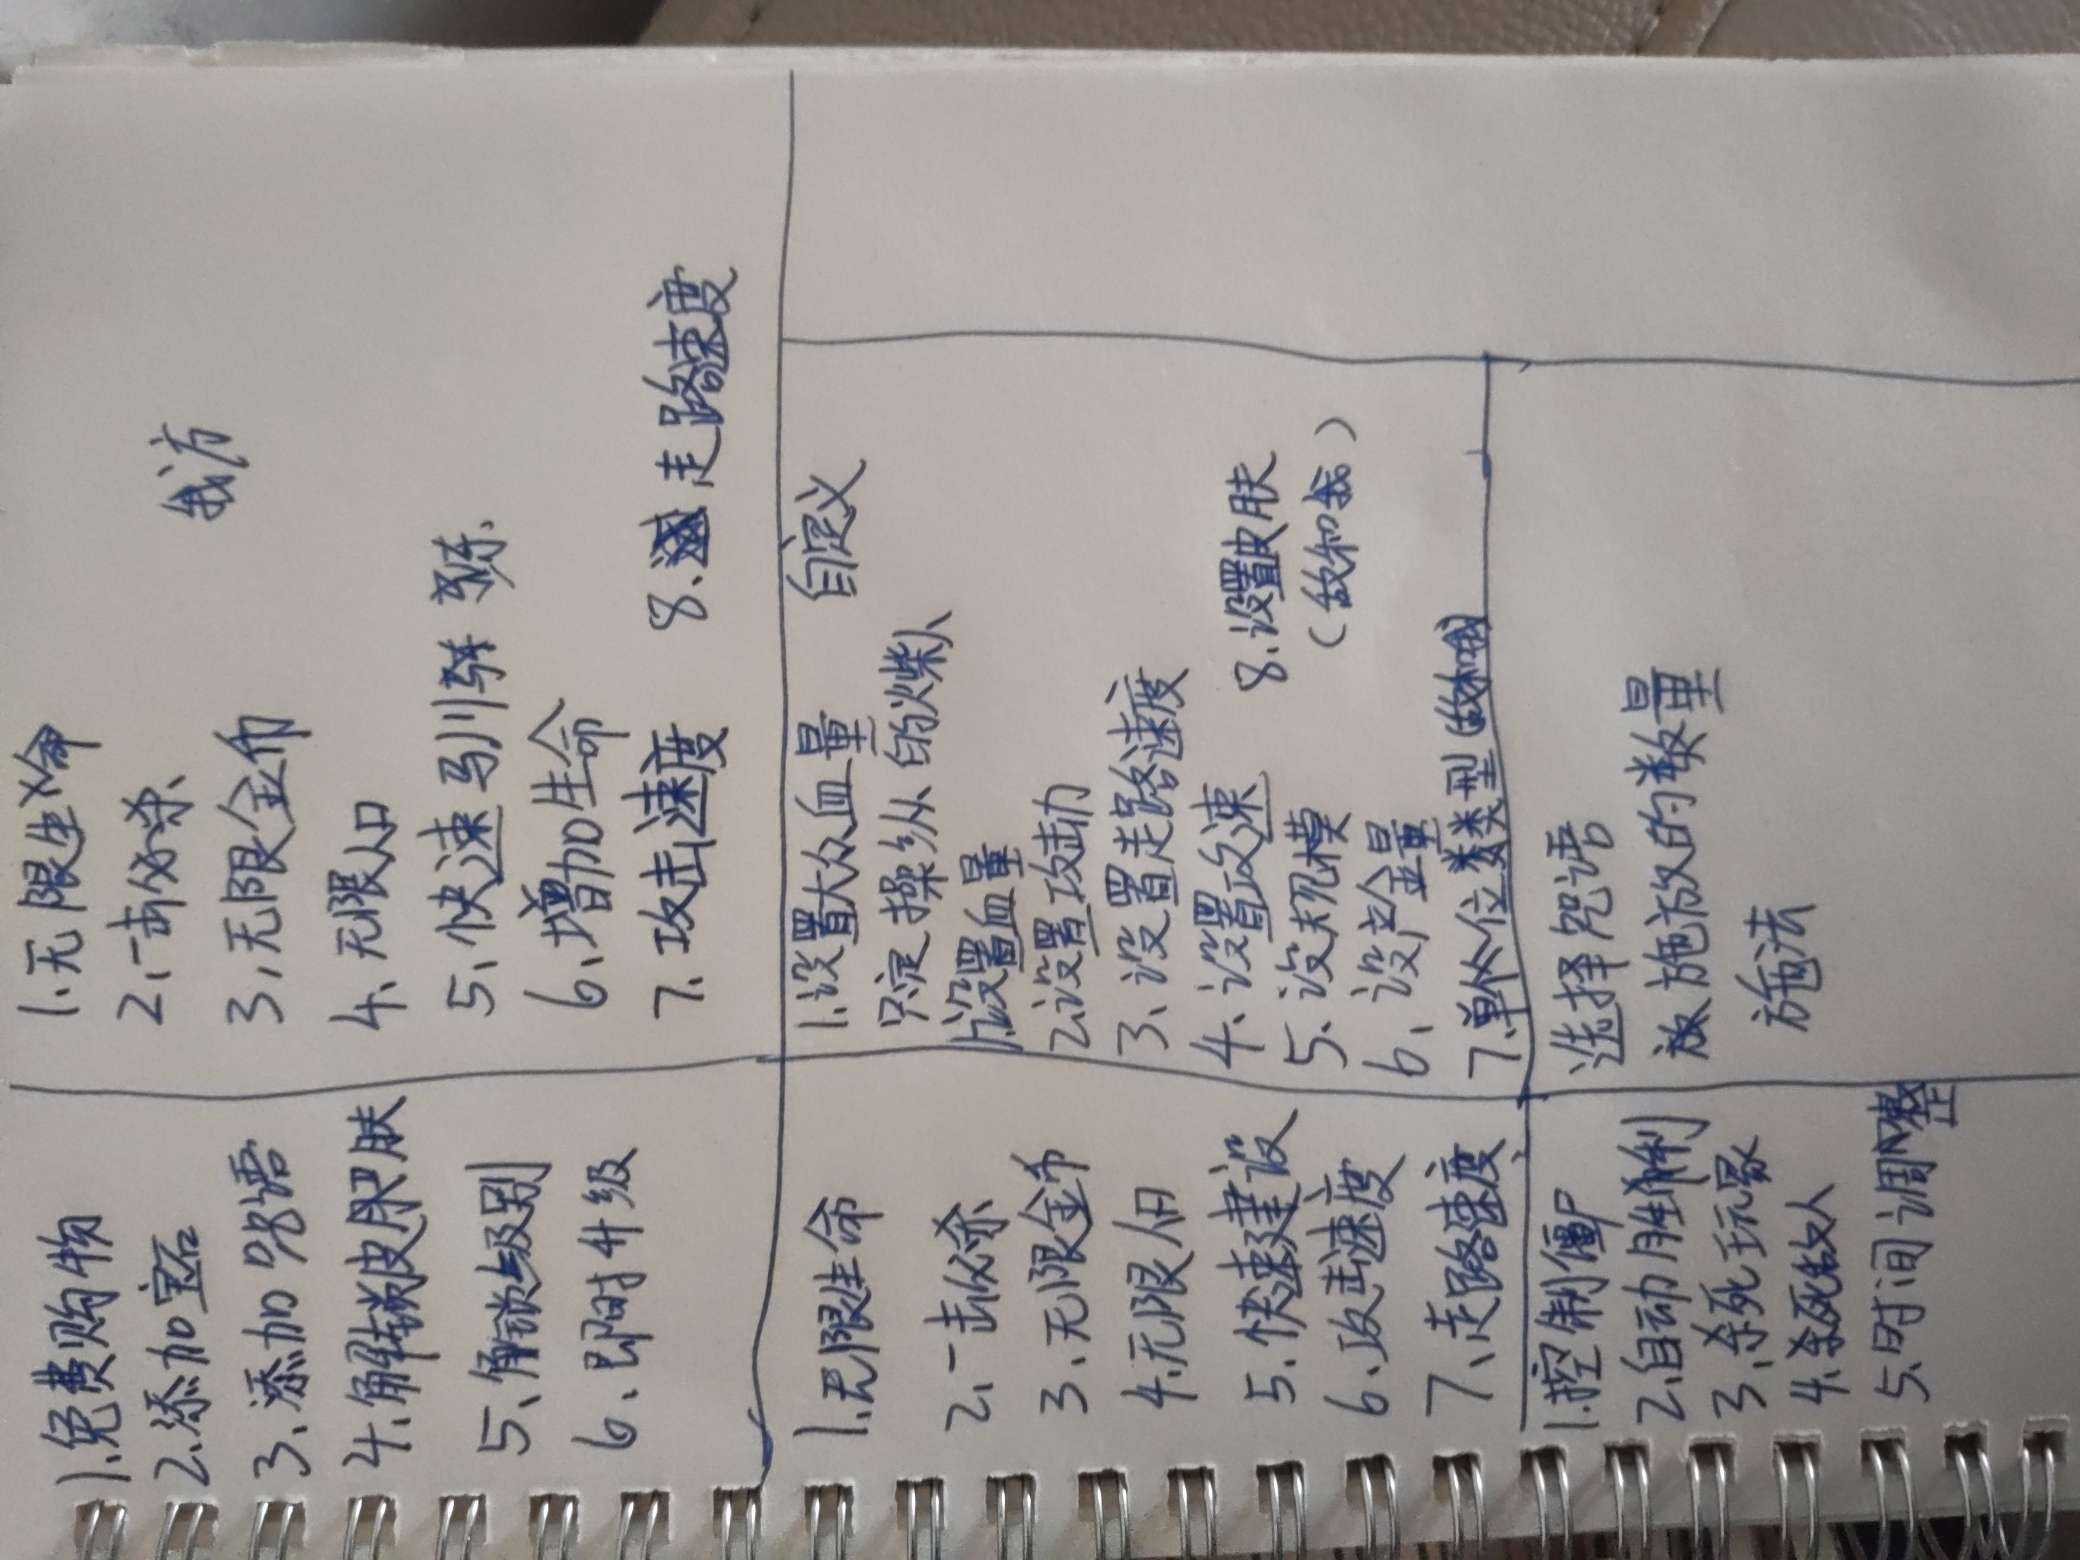 1.免费购物
2.添加宝石
3.添加咒语
4.解锁皮肤
5.解锁级别
6.即时升级
我方
1.无限生命
2.一击必杀
3.无限金币
4.无限人口
5.快速驯练
6.增加生命
7.攻击速度
8.走路速度
1.无限生命
2.一击必杀
3.无限金币
4.无限人口
5.快速建设
6.攻击速度
7.走路速度
自定义
1.设置大众血量
只定操纵的火柴人
1.设置血量
2.设置攻击力
3.设置走路速度
4.设置攻速
5.设规模
6.设产金量
7.单个位类型(敌和我)
8.设置皮肤
(敌和我)
1.控制僵尸
2.自动胜利
3.杀死玩家
4.杀死敌人
5.时间调整
选择咒语
施放的数量
施法